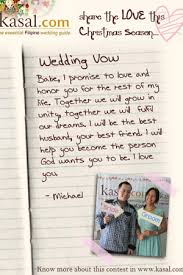 Kasal.com
the essential Filipino wedding guide
share the LOVE this
Christmas Season...
Wedding Vow
Babe, I promise to love and
honor you for the rest of my
life. Together we will grow in
unity together we will fulfil
our dreams. I will be the best
husband, your best friend. I will
help you become the person
God wants you to be. I love
you.
- Michael
Kasal.com
GROOM
Know more about this contest in www.kasal.com